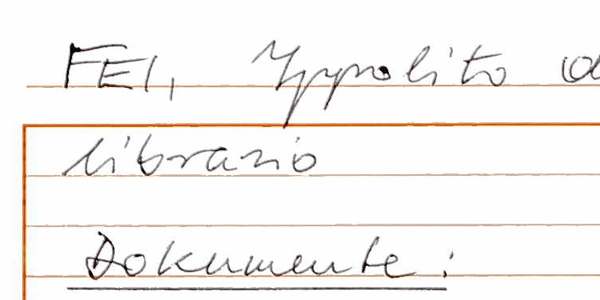 FEI, Yppolito
librario
Dokumente: